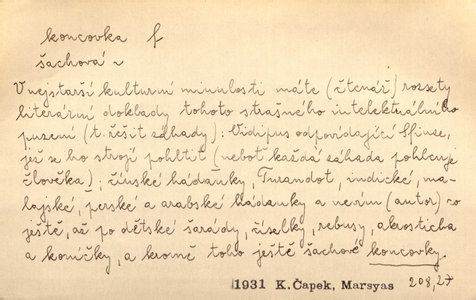 koncovka f
šachová ~
V nejstarší kulturní minulosti máte (čtenář) rozsety
literární doklady tohoto strašného intelektuálního
puzení (t. řešit záhady): Oidipus odpovídající Sfinze,
jež se ho strojí pohltit (neboť každá záhada pohlcuje
člověka); čínské hádanky, Turandot, indické, ma-
lajské, perské a arabské hádanky a nevím (autor) co
ještě, až po dětské šarády, číselky, rebusy, akrosticha
a koníčky, a kromě toho ještě šachové koncovky.
1931 K. Čapek, Marsyas 208,27